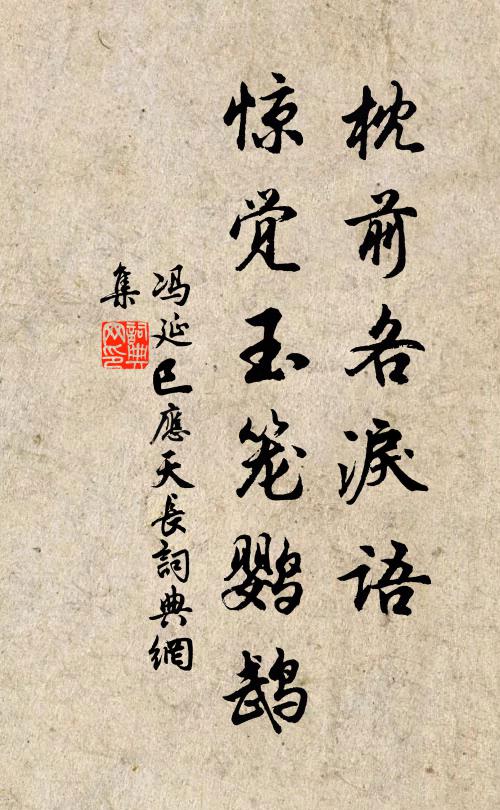 枕前各淚语
惊觉玉笼鹦鹉
冯延巳應天長詞典網
集
詞典網印